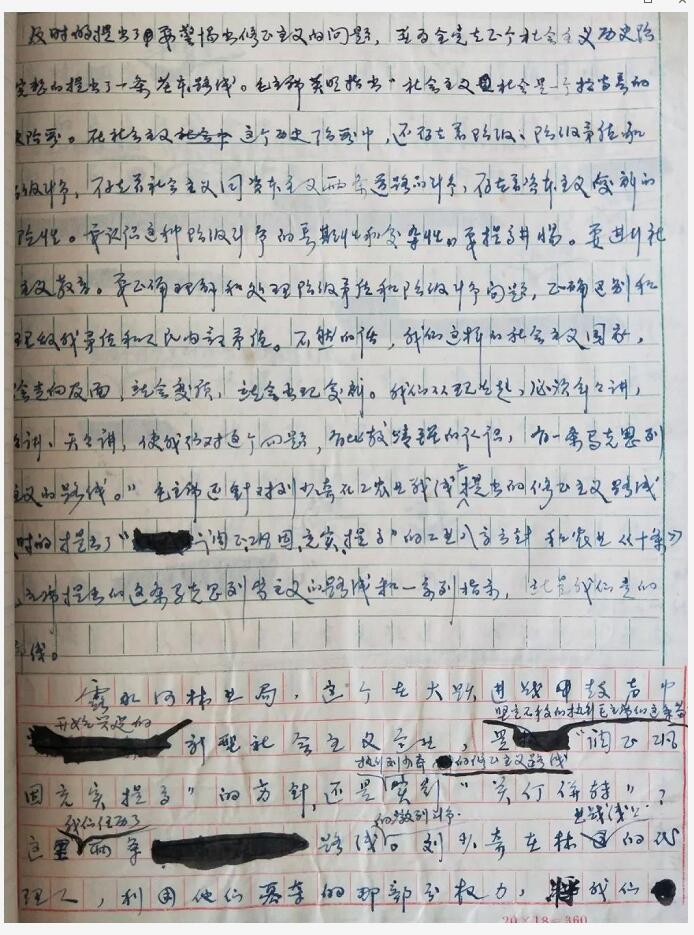 及时的提出了要警惕出修正主义的问题，并为全党在整个社会主义历史阶
完整的提出了一条基本路线。毛主席英明指出“社会主义社会是一个相当长的
史阶段。在社会主义这个历史阶段中，还存在着阶级、阶级矛盾和
阶级斗争，存在着社会主义同资本主义两条道路的斗争，存在着资本主义复辟的
险性。要认识这种阶级斗争的长期性和复杂性。要提高警惕。要进行社
主义教育。要正确理解和处理阶级矛盾和阶级斗争问题，正确区别和
理敌我矛盾和人民内部矛盾。不然的话，我们这样的社会主义国家，
会走向反面，就会变质，就会出现复辟。我们从现在起，必须年年讲，
月讲、天天讲，使我们对这个问题，有比较清醒的认识，有一条马克思列
主义的路线。”毛主席还针对刘少奇在工农业战线上提出的修正主义路线
时的提出了“调正巩固、充实、提高”的工业八字方针和农业《六十条》
毛主席提出的这条马克思列宁主义的路线和一系列指示，就是我们党的
路线。
露水河林业局，这个在大跃进战鼓声中
开始兴建的 坚定不移的执行毛主席的这条
新型社会主义企业，是 “调正巩
执行刘少奇 的修正主义路线
固充实提高”的方针，还是实行“关停併转”？
我们经历了 的激烈斗争 业战线
这两条 路线。刘少奇在林 的代
理人，利用他们篡夺的那部分权力，将我们
20×18=360